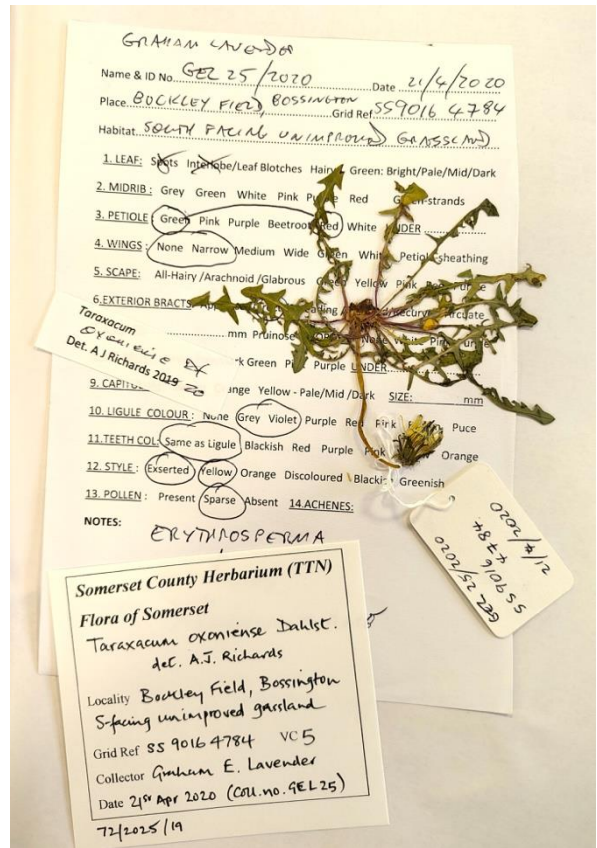 GRAHAM LAVENDER
Name & ID No. GEL 25/2020 Date 21/4/2020
Place BOCKLEY FIELD, BOSSINGTON Grid Ref. SS9016 4784
Habitat SOUTH FACING UNIMPROVED GRASSLAND
1. LEAF: Spots Interlobe/Leaf Blotches Hairy Green: Bright/Pale/Mid/Dark
2. MIDRIB: Grey Green White Pink Red -strands
3. PETIOLE Green Pink Purple Beetroot Red White UNDER
4. WINGS: None Narrow Medium Wide Green White Petiole-sheathing
5. SCAPE: All-Hairy/Arachnoid/Glabrous Green Yellow Pink Red Purple
6. EXTERIOR BRACTS: Arcuate
mm Pruinose None White Pink Purple
Taraxacum
oxoniense
Det. A J Richards 2019 20
Green Purple UNDER
9. Yellow - Pale/Mid/Dark SIZE: mm
10. LIGULE COLOUR: None Grey Violet Purple Red Pink Puce
11. TEETH COL: Same as Ligule Blackish Red Purple Pink Orange
12. STYLE: Exserted Yellow Orange Discoloured Blackish Greenish
13. POLLEN: Present Sparse Absent 14. ACHENES:
NOTES: ERYTHROSPERMA
GEL 25/2020
SS9016
4784
21/4/2020
Somerset County Herbarium (TTN)
Flora of Somerset
Taraxacum oxoniense Dahlst.
det. A.J. Richards
Locality Bockley Field, Bossington
S-facing unimproved grassland
Grid Ref SS 9016 4784 VC 5
Collector Graham E. Lavender
Date 21st Apr 2020 (Coll. no. GEL25)
72/2025/19